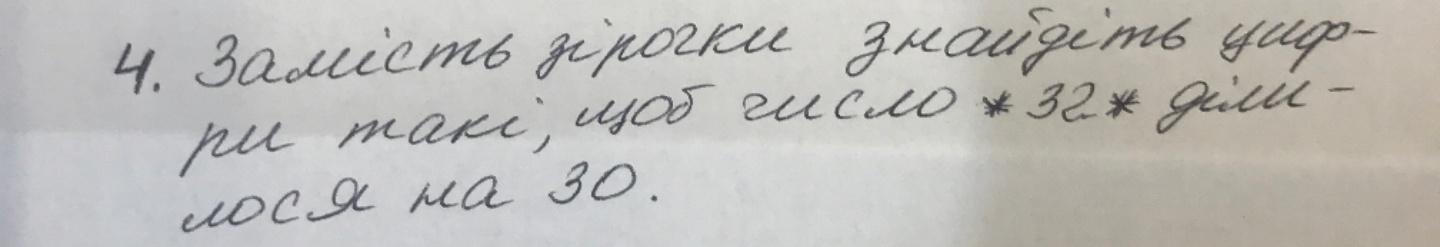 4. Замість зірочки знайдіть циф-
ри такі, щоб число *32* діли-
лося на 30.